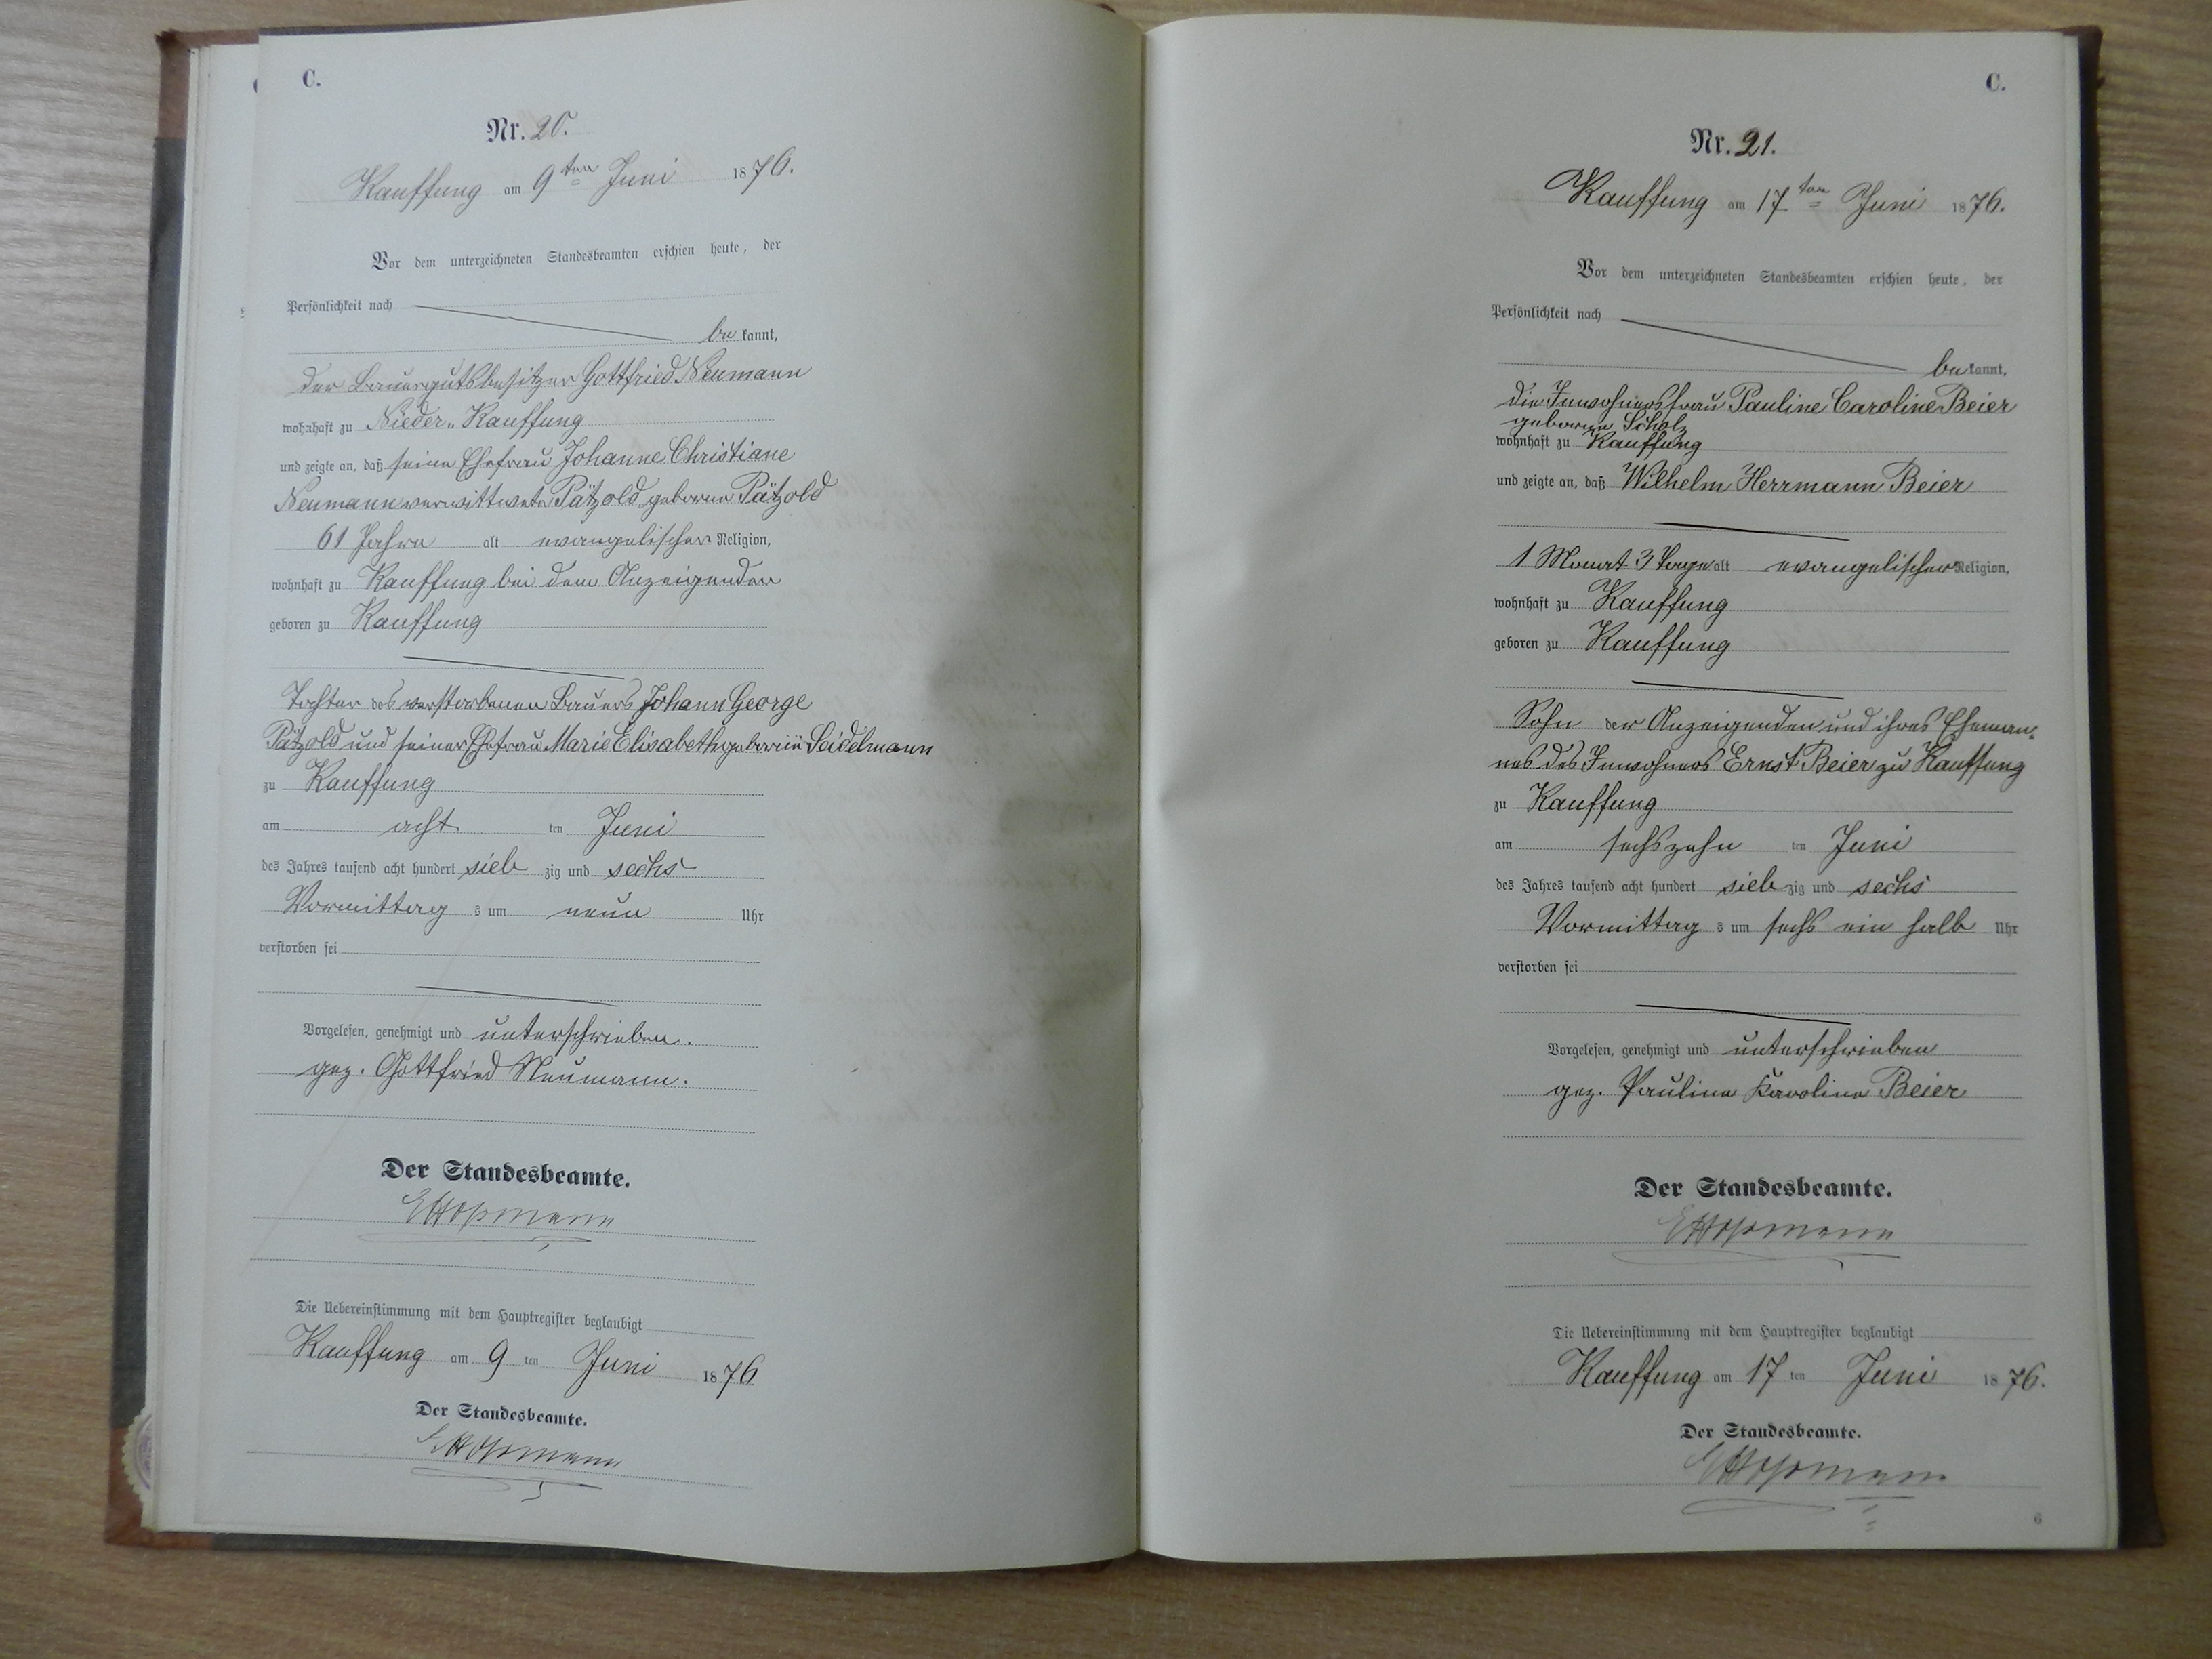 C.
Nr. 20.
Kauffung am 9ten Juni 1876.
Vor dem unterzeichneten Standesbeamten erschien heute, der
Persönlichkeit nach
bekannt,
der Bauergutsbesitzer Gottfried Neumann
wohnhaft zu Nieder-Kauffung
und zeigte an, daß seine Ehefrau Johanne Christiane
Neumann verwittwete Pätzold geborne Pätzold
61 Jahre alt evangelischer Religion,
wohnhaft zu Kauffung bei dem Anzeigenden
geboren zu Kauffung
Tochter des verstorbenen Bauers Johann George
Pätzold und seiner Ehefrau Marie Elisabeth geborne Seidelmann
zu Kauffung
am acht ten Juni
des Jahres tausend acht hundert siebzig und sechs
Vormittags um neun Uhr
verstorben sei
Vorgelesen, genehmigt und unterschrieben.
gez. Gottfried Neumann.
Der Standesbeamte.
Die Uebereinstimmung mit dem Hauptregister beglaubigt
Kauffung am 9 ten Juni 1876
Der Standesbeamte.
C.
Nr. 21.
Kauffung am 17ten Juni 1876.
Vor dem unterzeichneten Standesbeamten erschien heute, der
Persönlichkeit nach
bekannt,
die Inwohnersfrau Pauline Caroline Beier
geborne Scholz
wohnhaft zu Kauffung
und zeigte an, daß Wilhelm Herrmann Beier
1 Monat 3 Tage alt evangelischer Religion,
wohnhaft zu Kauffung
geboren zu Kauffung
Sohn der Anzeigenden und ihres Eheman-
nes des Inwohners Ernst Beier zu Kauffung
zu Kauffung
am sechszehn ten Juni
des Jahres tausend acht hundert siebzig und sechs
Vormittags um sechs ein halb Uhr
verstorben sei
Vorgelesen, genehmigt und unterschrieben
gez. Pauline Karoline Beier
Der Standesbeamte.
Die Uebereinstimmung mit dem Hauptregister beglaubigt
Kauffung am 17 ten Juni 1876.
Der Standesbeamte.
6